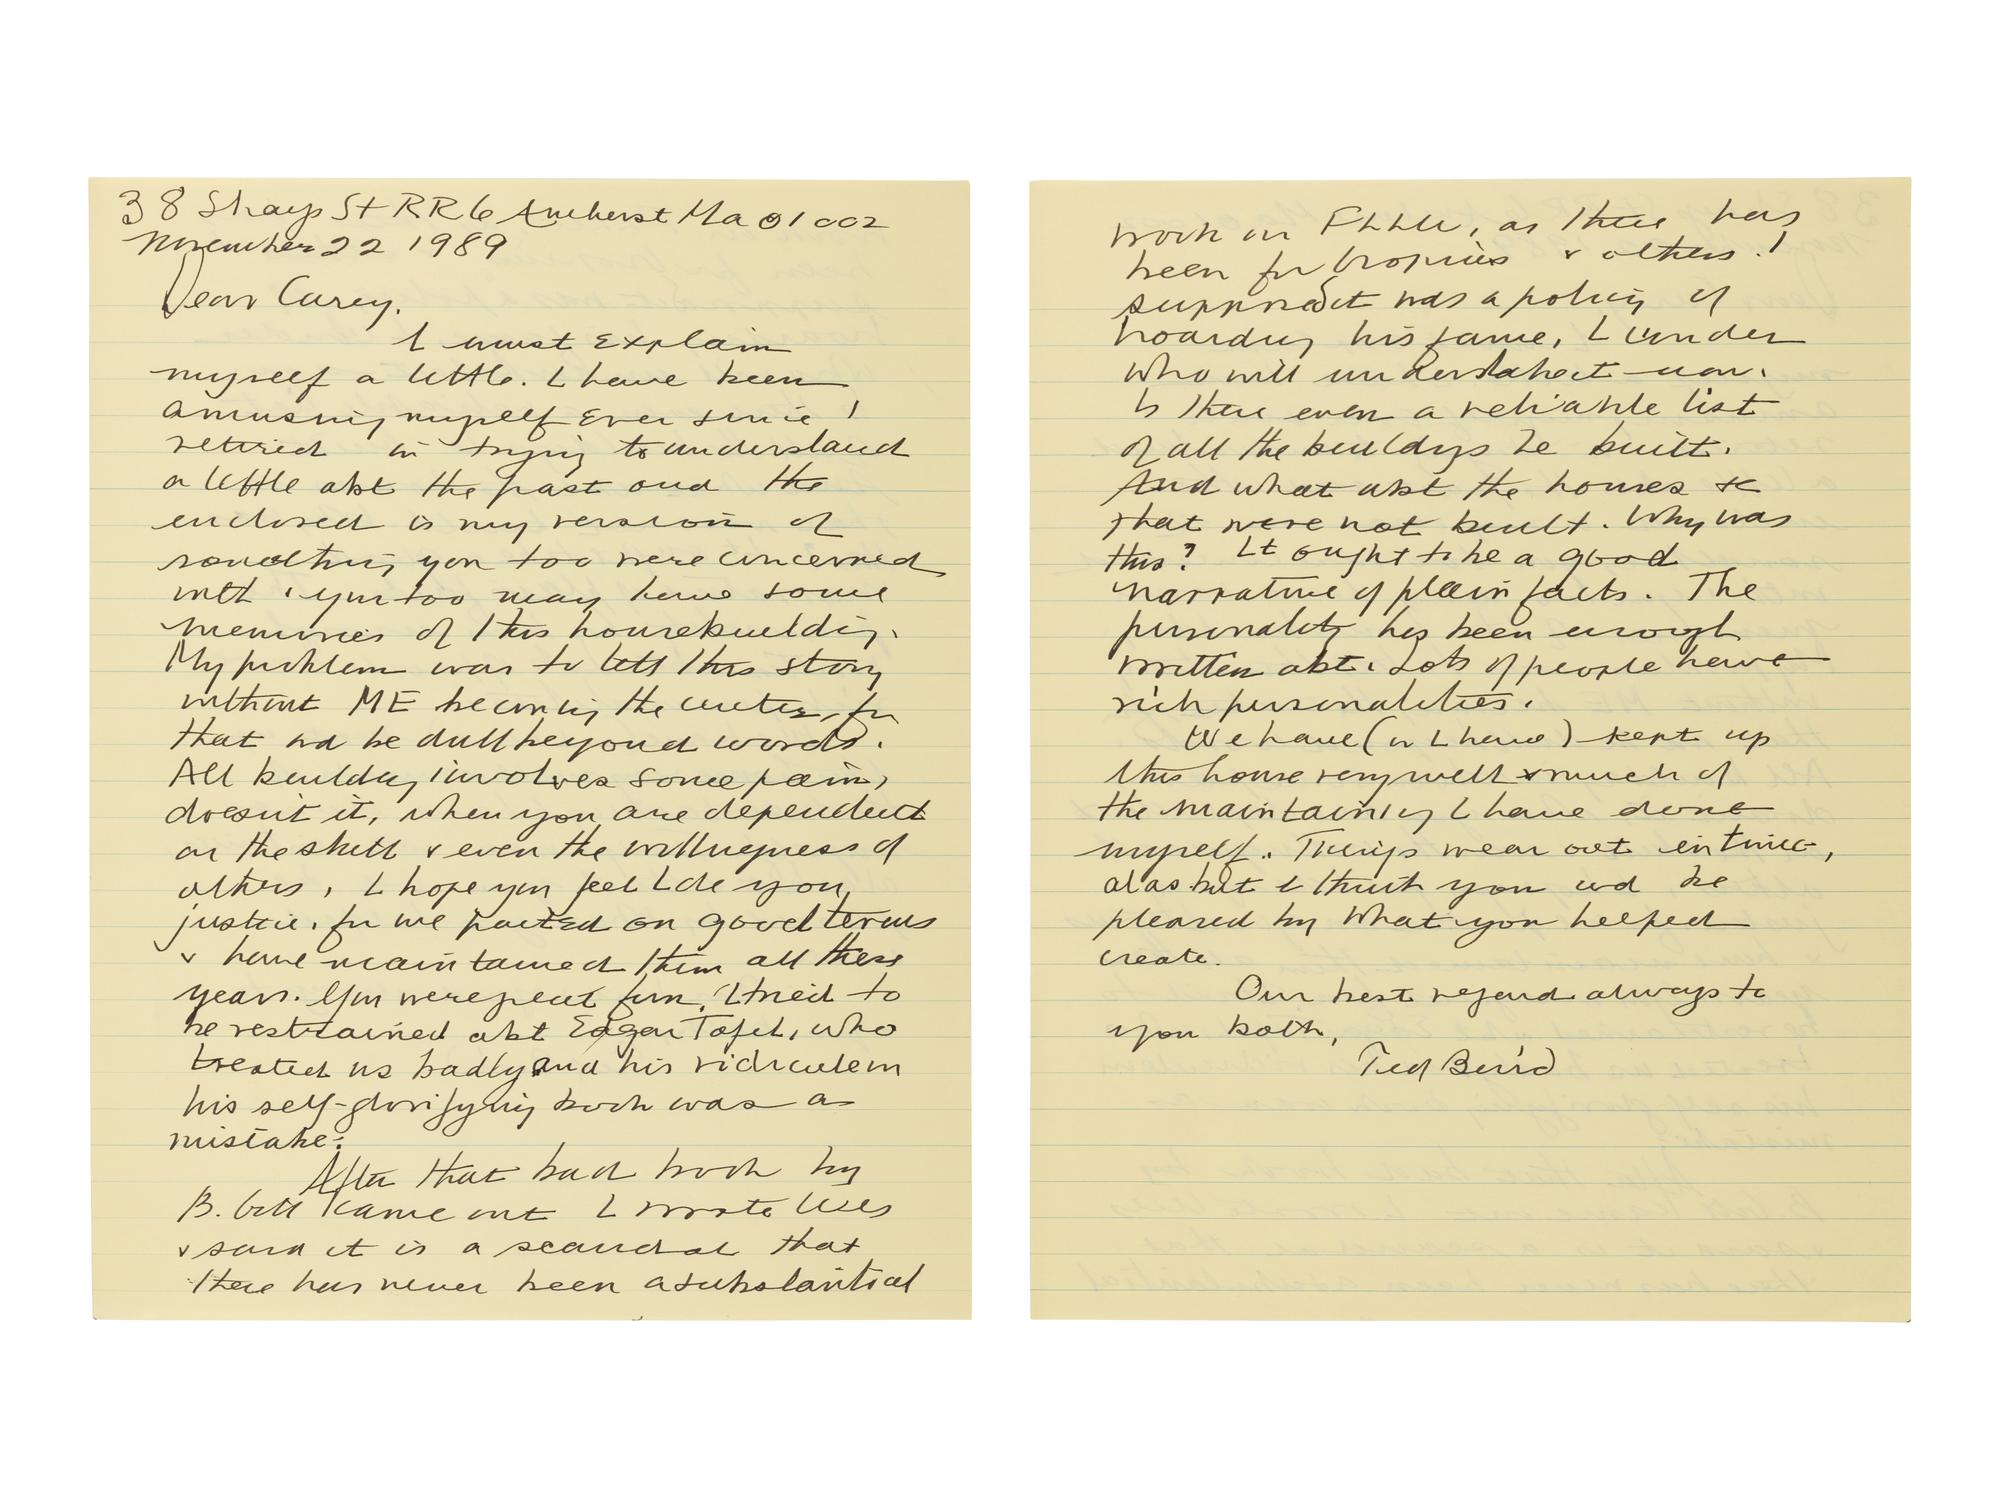 38 Shays St RR6 Amherst Ma 01002
November 22 1989
Dear Carey,
I must explain
myself a little. I have been
amusing myself ever since I
retired in trying to understand
a little abt the past and the
enclosed is my version of
something you too were concerned
with. You too may have some
memories of this housebuilding.
My problem was to tell this story
without ME becoming the center, for
that wd be dull beyond words.
All building involves some pain,
doesn't it, when you are dependent
on the skill & even the willingness of
others. I hope you feel I do you
justice, for we parted on good terms
& have maintained them all these
years. You were great fun. I tried to
be restrained abt Edgar Tafel, who
treated us badly and his ridiculem
his self-glorifying book was a
mistake.
After that bad book by
B. Gill came out I wrote
& said it is a scandal that
there has never been a substantial
work on FLLW, as there has
been for & others. I
suppose it was a policy of
hoarding his fame. I wonder
who will undertake it now.
Is there even a reliable list
of all the buildgs he built.
And what abt the houses &c
that were not built. Why was
this? It ought to be a good
narrative of plain facts. The
personality has been enough
written abt. Lots of people have
rich personalities.
We have (or I have) kept up
this house very well & much of
the maintaining I have done
myself. Things wear out in time,
alas but I think you wd be
pleased by what you helped
create.
Our best regard always to
you both,
Ted Baird